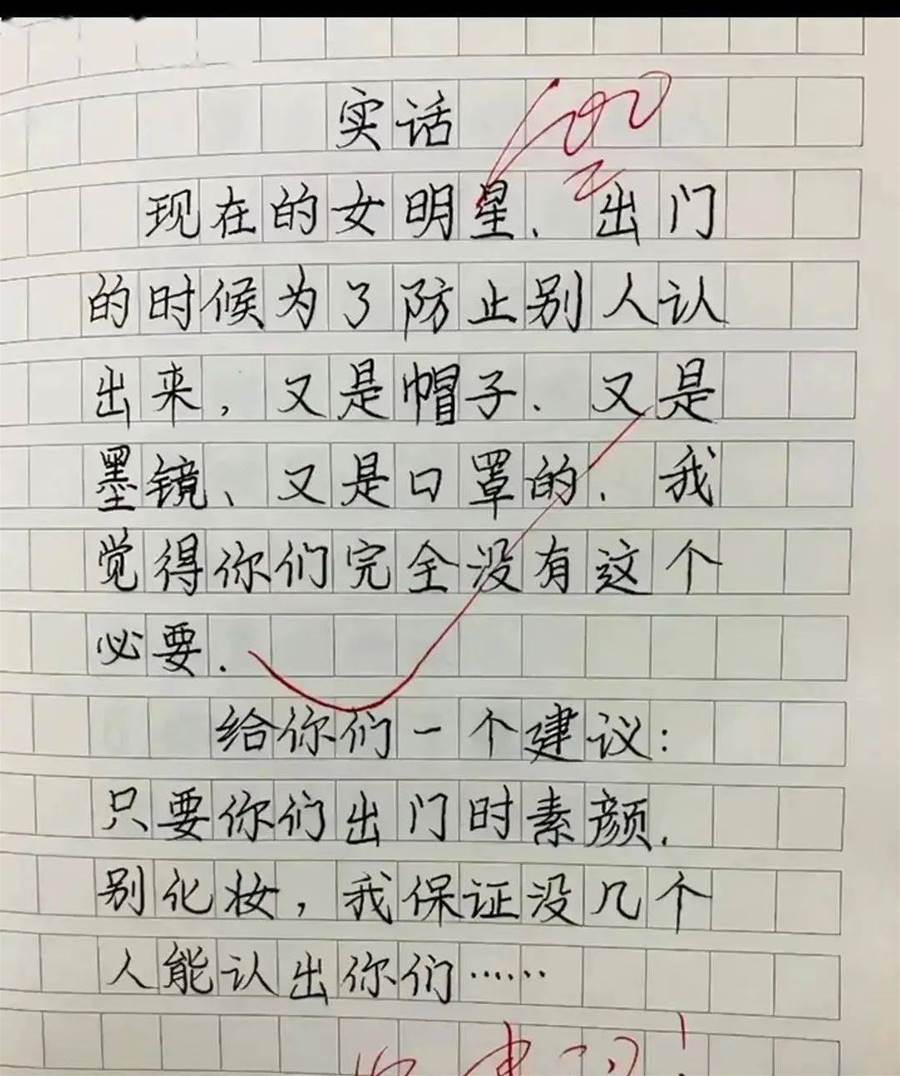 实话
100
现在的女明星、出门
的时候为了防止别人认
出来,又是帽子、又是
墨镜、又是口罩的、我
觉得你们完全没有这个
必要.
给你们一个建议:
只要你们出门时素颜.
别化妆,我保证没几个
人能认出你们……